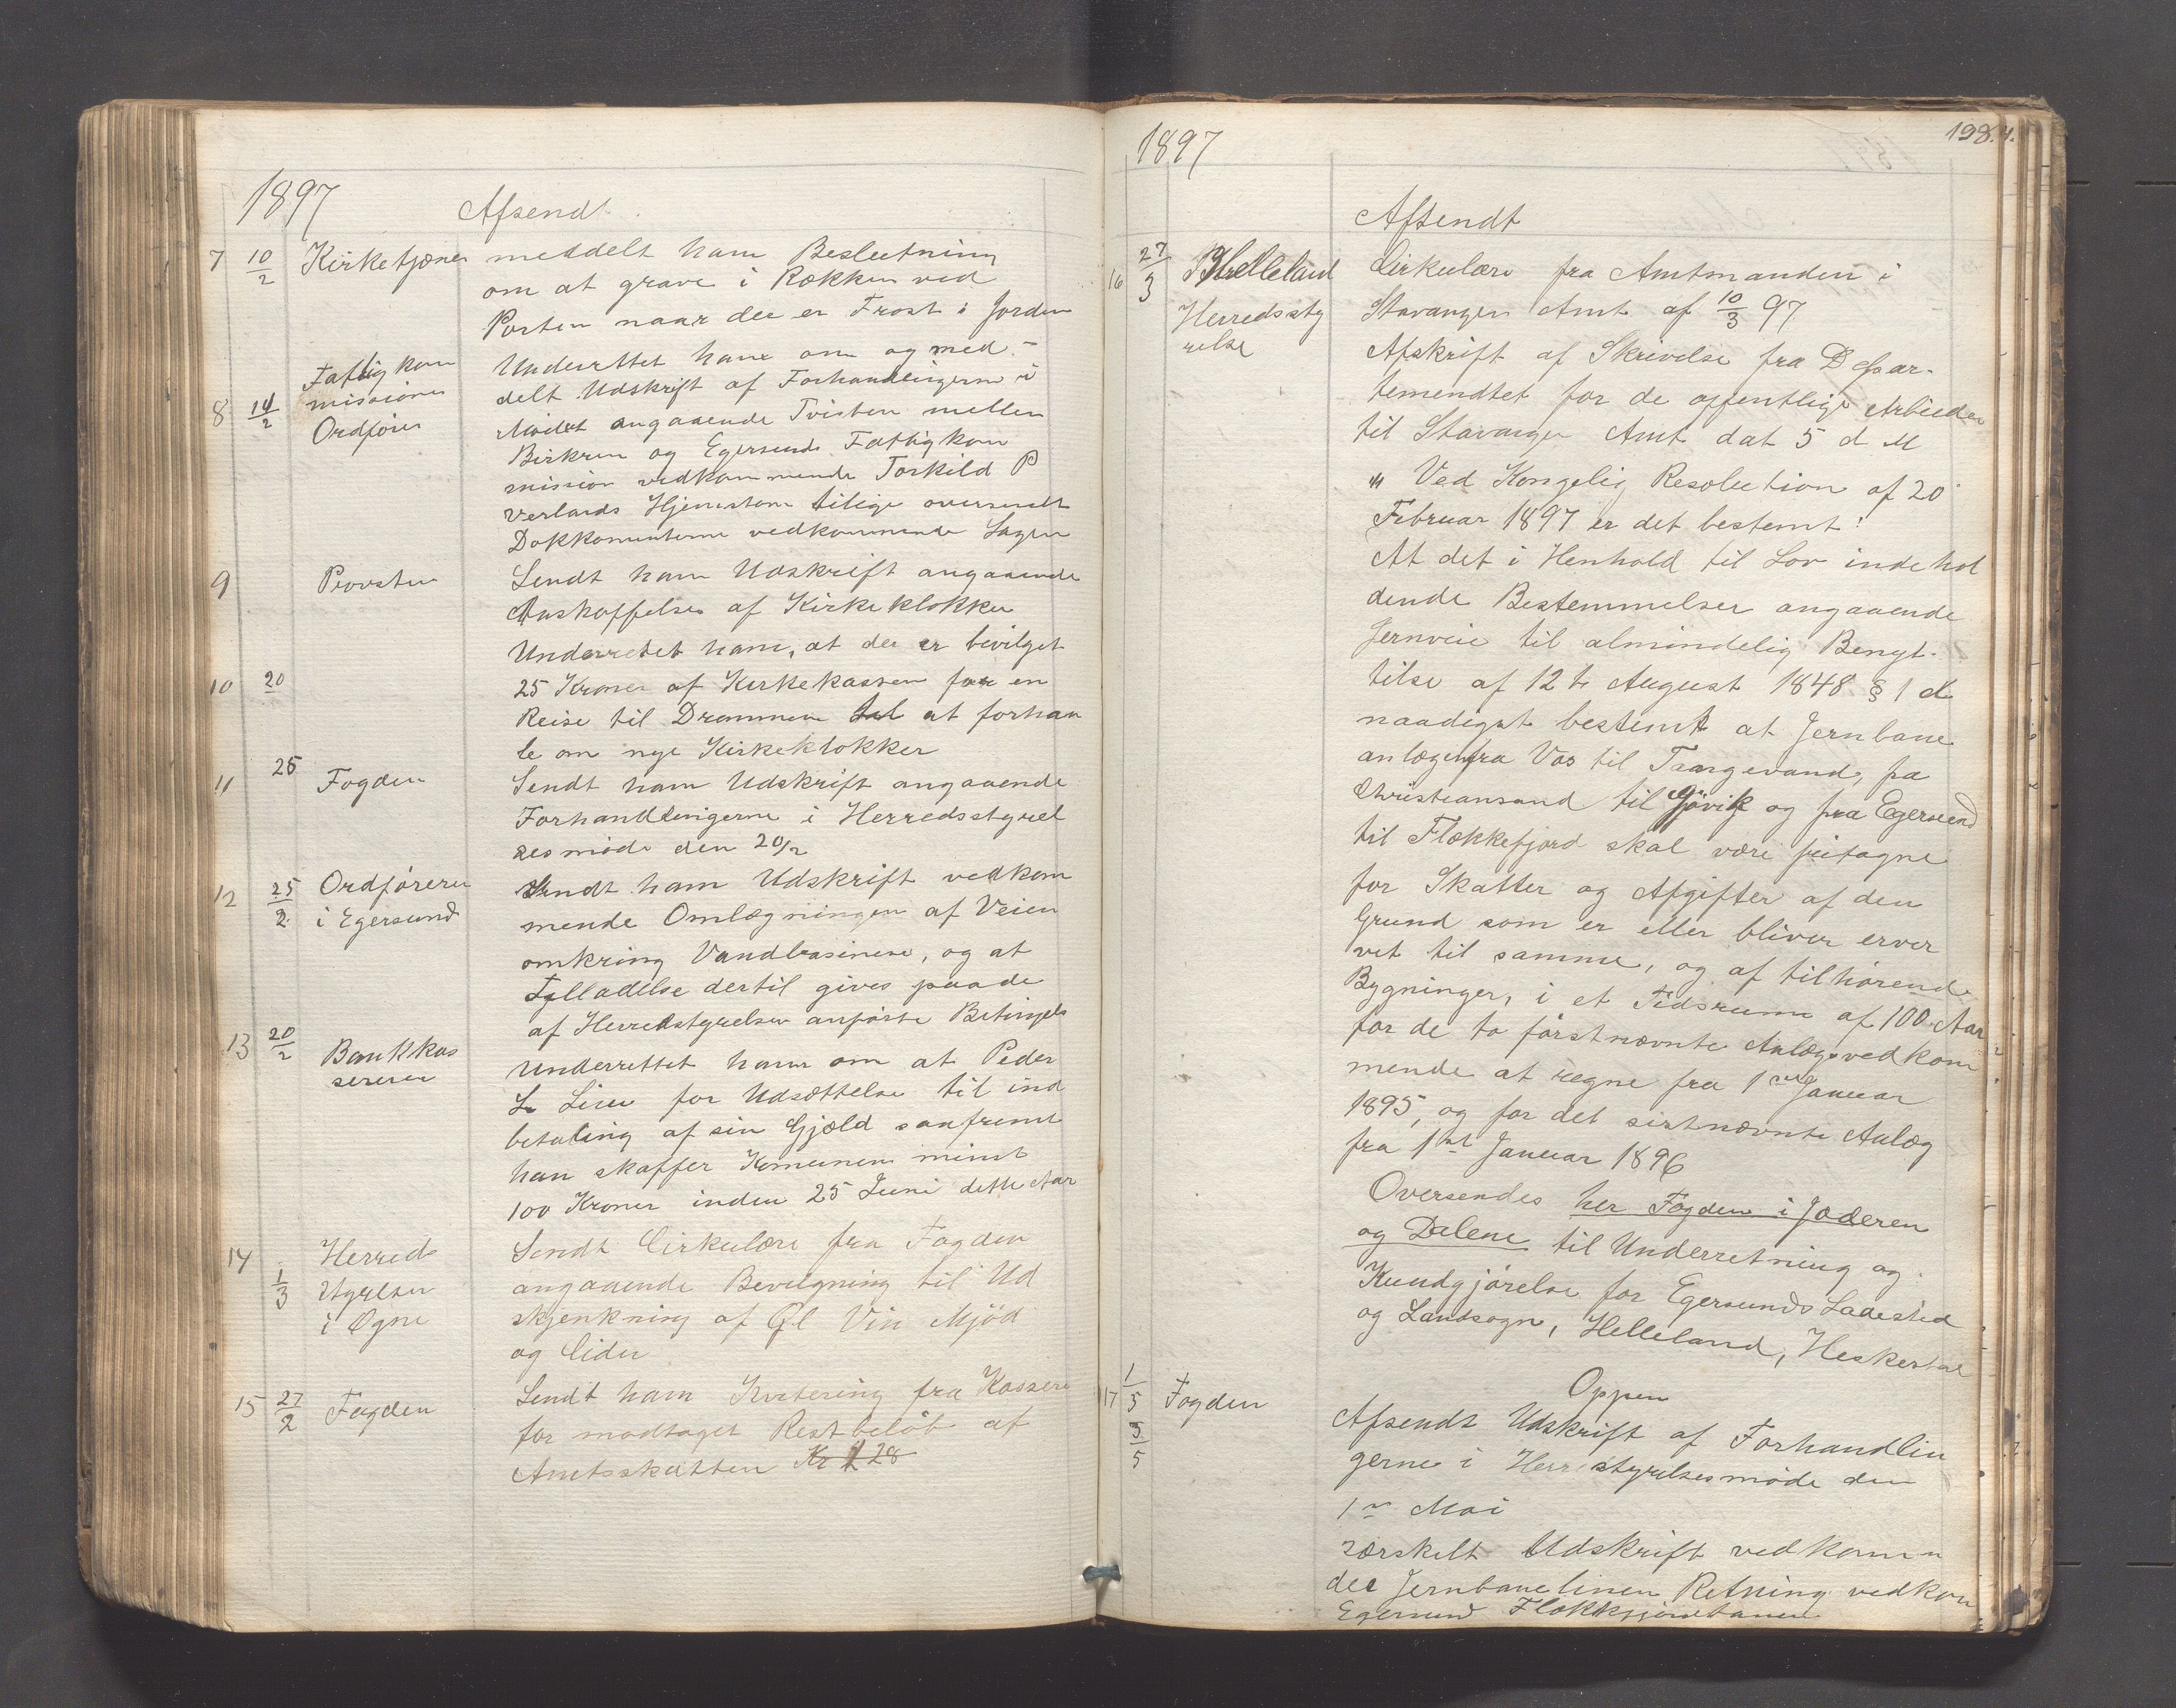 1897
Afsendt
7 10/2 Kirketjener meddelt ham Beslutning
om at grave i Rækken ved
Porten naar der er Frost i Jorden
Fattigkom
missionen
8 14/2 Ordfører
Underrettet ham om og med-
delt Udskrift af Forhandlingerne i
Mødet angaaende Tvisten mellem
Birkrem og Egersunds Fattigkom
mission vedkommende Torkild P
verlands Hjemstavn tillige oversendt
Dokkomenterne vedkommende Sagen
9 Provsten Sendt ham Udskrift angaaende
Anskaffelse af Kirkeklokker
Underretet ham, at der er bevilget
10 20 25 Kroner af Kirkekassen for en
Reise til Drammen at forhan
le om nye Kirkeklokker
11 25 Fogden Sendt ham Udskrift angaaende
Forhandlingerne i Herredsstyrel
sesmøde den 20/2
12 25/2 Ordføreren Sendt ham Udskrift vedkom
i Egersund mende Omlægningen af Veien
omkring Vandbasinene, og at
Tilladelse dertil gives paa de
af Herredstyrelsen anførte Betingels
13 20/2 Bankkas
sereren
Underrettet ham om at Peder
L Lien for Udsættelse til ind
betaling af sin Gjæld saafremt
han skaffer Komunen minst
100 Kroner inden 25 Juni dette Aar
14 1/3 Herreds
styrelsen
i Ogne
Sendt Cirkulære fra Fogden
angaaende Bevilgning til Ud
skjenkning af Øl Vin Mjød
og Cider
15 27/2 Fogden Sendt ham Kvitering fra Kassere
for modtaget Restbeløb af
Amtsskatten Kr 228
1897
198.
Afsendt
16 27/3 Helleland
Herredssty
relse
Cirkulære fra Amtmanden i
Stavanger Amt af 10/3 97
Afskrift af Skrivelse fra Depar-
temendtet for de offentlige Arbeider
til Stavanger Amt dat 5 d M
"Ved Kongelig Resolution af 20
Februar 1897 er det bestemt:
At det i Henhold til Lov indehol
dende Bestemmelser angaaende
Jernveie til almindelig Benyt-
telse af 12te August 1848 § 1 d
naadigst bestemt at Jernbane
anlægen fra Vos til Taugevand, fra
Christiansand til og fra Egersund
til Flækkefjord skal være fritagne
for Skatter og Afgifter af den
Grund som er eller bliver erver
vet til samme, og af tilhørende
Bygninger, i et Tidsrum af 100 Aar
for de to førstnævnte Anlægs vedkom
mende at regne fra 1ste Januar
1895, og for det sistnævnte Anlæg
fra 1st Januar 1896
Oversendes her Fogden i Jæderen
og Dalene til Underretning og
Kundgjørelse for Egersunds Ladested
og Landsogn, Helleland, Heskestad
Oppen
17 1/5 Fogden Afsendt Udskrift af Forhandlin
3/5 gerne i Herrstyrelsesmøde den
1ste Mai
særskilt Udskrift vedkomm
der Jernbanelinen Retning vedkom
Egersund Flækkefjordbanen